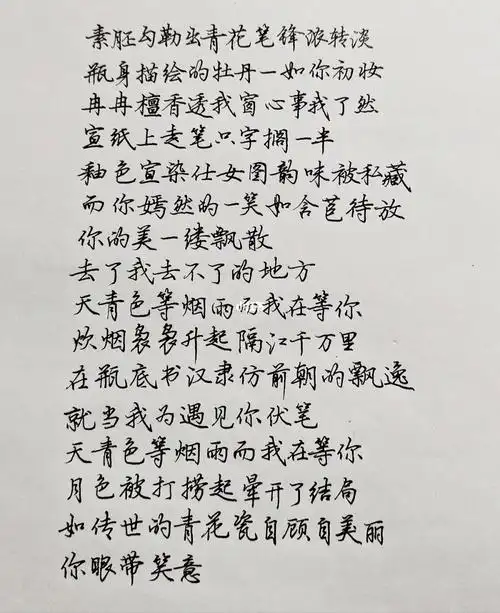 素胚勾勒出青花笔锋浓转淡
瓶身描绘的牡丹一如你初妆
冉冉檀香透我窗心事我了然
宣纸上走笔只字搁一半
釉色宣染仕女图韵味被私藏
而你嫣然的一笑如含苞待放
你的美一缕飘散
去了我去不了的地方
天青色等烟雨而我在等你
炊烟袅袅升起隔江千万里
在瓶底书汉隶仿前朝的飘逸
就当我为遇见你伏笔
天青色等烟雨而我在等你
月色被打捞起晕开了结局
如传世的青花瓷自顾自美丽
你眼带笑意